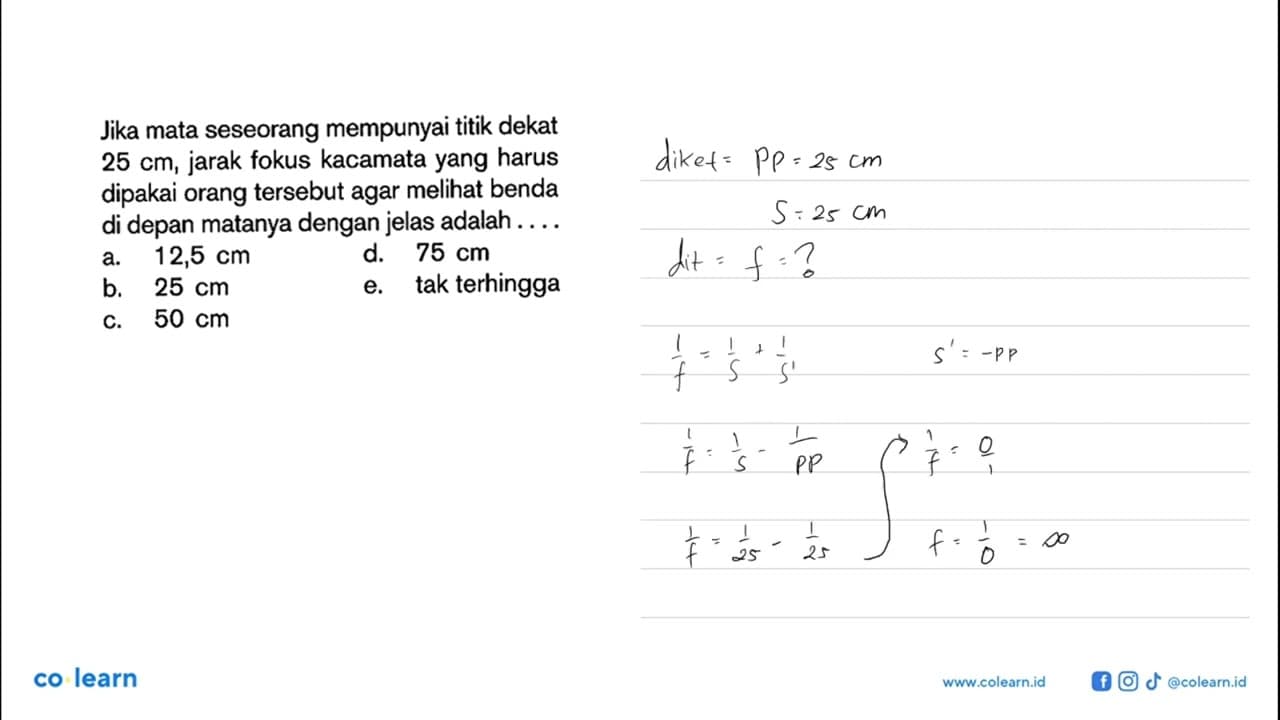 Jika mata seseorang mempunyai titik dekat
25 cm, jarak fokus kacamata yang harus
dipakai orang tersebut agar melihat benda
di depan matanya dengan jelas adalah . . . .
a. 12,5 cm d. 75 cm
b. 25 cm e. tak terhingga
c. 50 cm
diket = PP = 25 cm
S = 25 cm
dit = f = ?
1/f = 1/S + 1/S' S' = -PP
1/f = 1/S - 1/PP 1/f = 0/1
1/f = 1/25 - 1/25 f = 1/0 = ∞
co learn
www.colearn.id @colearn.id